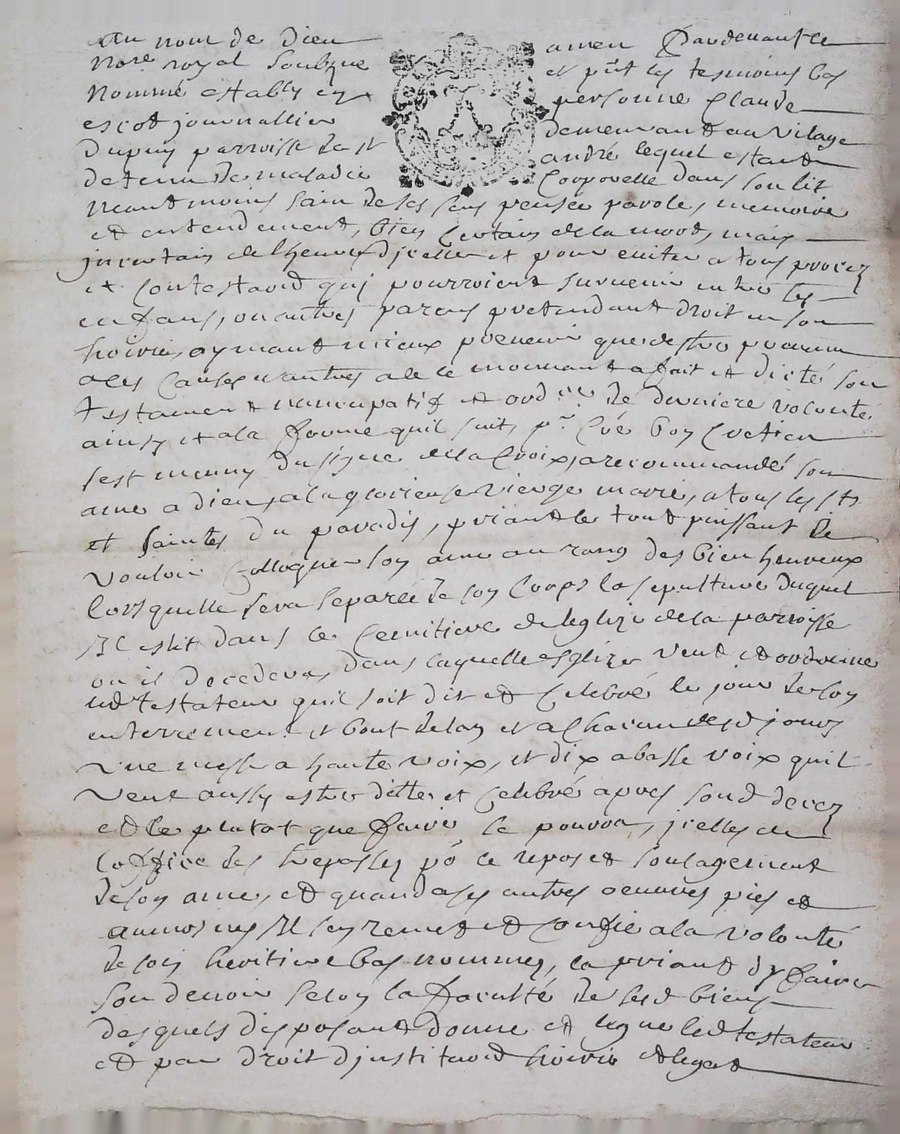 Au nom de Dieu amen Pardevant le
No.re royal soubzne et pñt les tesmoins bas
Nommé estably en personne Claude
escot journallier demeurant au vilage
Dupuy parroisse de st andré lequel estant
detenu de maladie Corporelle dans son lit
Neantmoins sain de ses sens pensée parole, memoire
et entendement, bien Certain de la mort, mais
jncertain de lheure djcelle et pour eviter a tous procez
et Contestaõns quj pourroient survenir entre ses
enfans, ou autres parens pretendant droit en son
hoirie, aymant mieux prevenir que destre prevenu
a ces Causes et autres a le mouvant a fait et dicté son
testament nuncupatif et ord.ce de derniere volonté
ainsy et a la forme quil suit, p.r Cõe bon Cretien
sest muny du signe de la Croix, a recommandé son
ame a dieu, a la glorieuse vierge marie, a tous les sts
et saintes du paradis, priant le tout puissant de
vouloir Colloquer son ame au rang des bien heureux
lorsquelle sera separée de son Corps la sepulture duquel
Il eslit dans le Cemitiere de leglize de la parroisse
ou il decedera, dans laquelle esglize veut et ordonne
led testateur quil soit dit et Celebré le jour de son
enterrement et bout de lan et a Chacun desd jours
une messe a haute voix, et dix a basse voix quil
veut aussy estre dittes et Celebré apres sond decez
et le plutot que faire se pourra, jcelles de
loffice des trepassez po le repos et soulagement
de son ame, et quand a ses autres oeuvres pies et
aumosnes Il sen remet et Confie a la volonté
de son heritiere bas nommée, la priant dy faire
son devoir selon la faculté de sesd biens
desquels disposant donne et legue led testateur
et par droit djnstitutaõn hoirie et legat